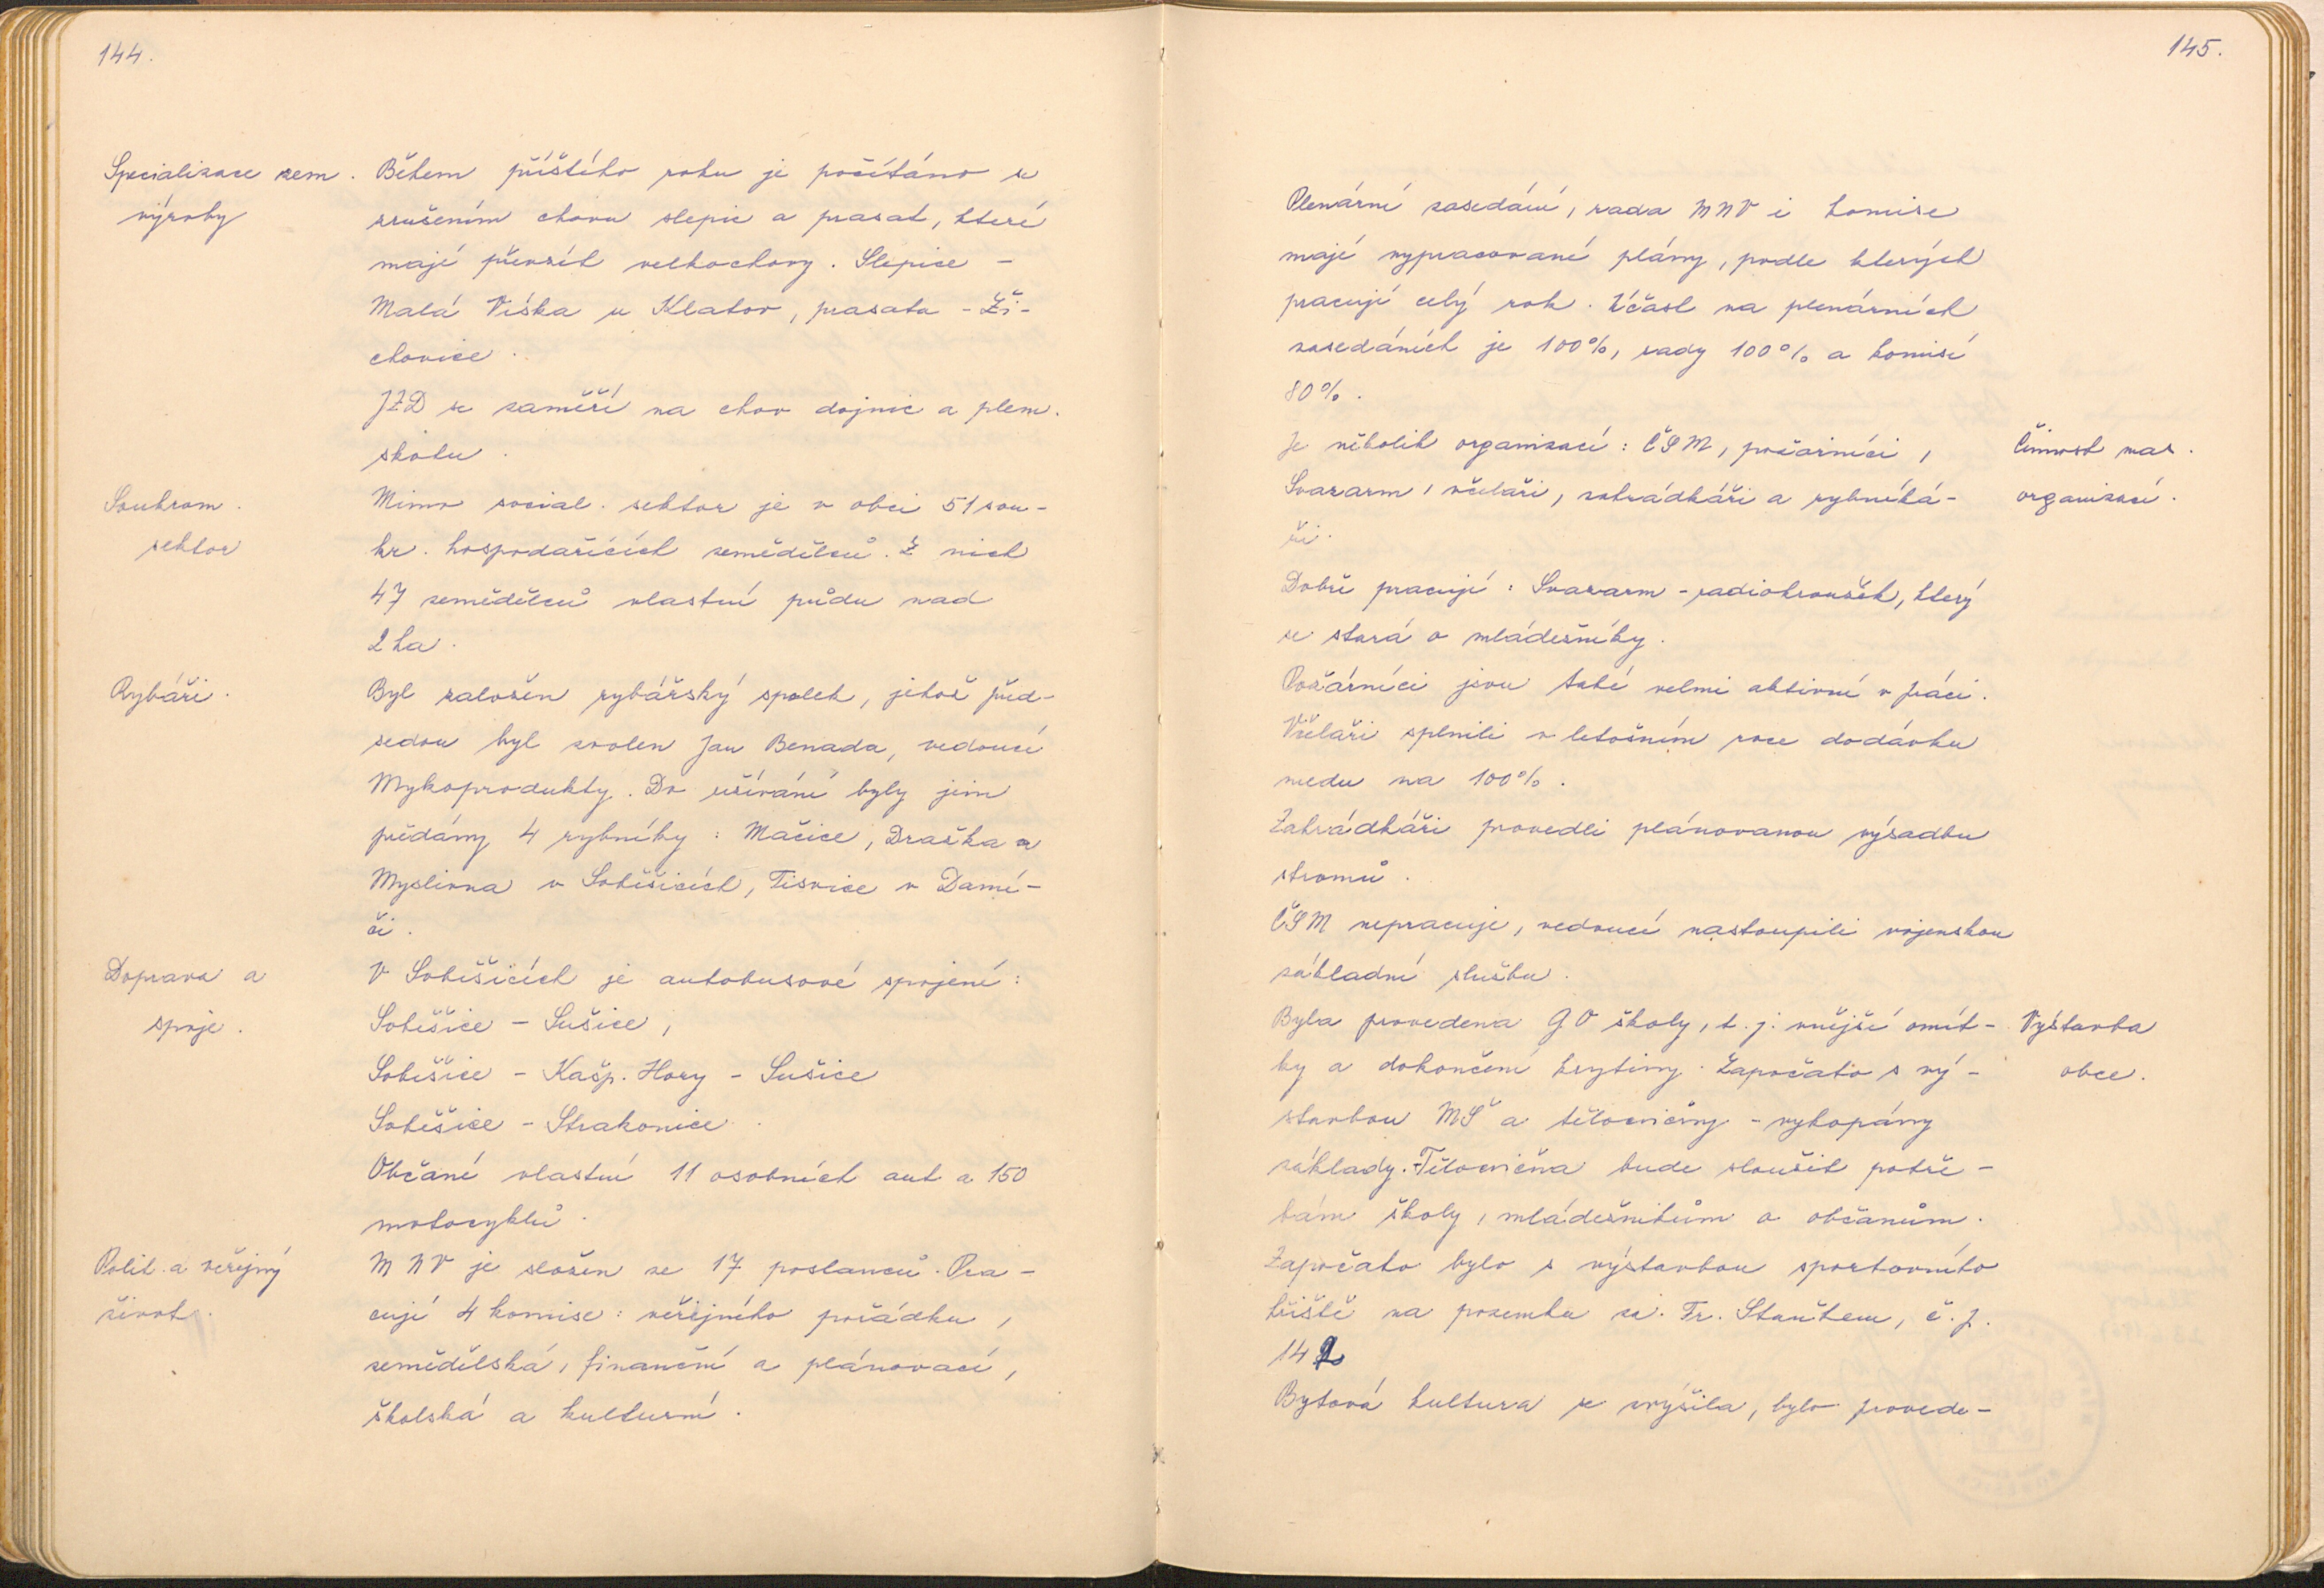 144.
Specializace zem.
výroby
Během příštího roku je počítáno se
zrušením chovu slepic a prasat, které
mají převzít velkochovy. Slepice -
Malá Víska u Klatov, prasata - Ži-
chovice.
JZD se zaměří na chov dojnic a plem.
skotu.
Soukrom.
sektor
Mimo social. sektor je v obci 51 sou-
kr. hospodařících zemědělců. Z nich
47 zemědělců vlastní půdu nad
2 ha.
Rybáři.
Byl založen rybářský spolek, jehož před-
sedou byl zvolen Jan Benada, vedoucí
Mykoprodukty. Do užívání byly jim
předány 4 rybníky: Mačice, Dražka a
Myslivna v Soběšicích, Tisvice v Damí-
či.
Doprava a
spoje.
V Soběšicích je autobusové spojení:
Soběšice - Sušice,
Soběšice - Kašp. Hory - Sušice
Soběšice - Strakonice.
Občané vlastní 11 osobních aut a 150
motocyklů.
Polit. a veřejný
život.
MNV je složen ze 17 poslanců. Pra-
cují 4 komise: veřejného pořádku,
zemědělská, finanční a plánovací,
školská a kulturní.
145.
Plenární zasedání, rada MNV i komise
mají vypracované plány, podle kterých
pracují celý rok. Účast na plenárních
zasedáních je 100%, rady 100% a komisí
80%.
Je několik organizací: ČSM, požárníci,
Svazarm, včelaři, zahrádkáři a rybníká-
ři.
Činnost mas.
organizací.
Dobře pracují: Svazarm - radiokroužek, který
se stará o mládežníky.
Požárníci jsou také velmi aktivní v práci.
Včelaři splnili v letošním roce dodávku
medu na 100%.
Zahrádkáři provedli plánovanou výsadbu
stromů.
ČSM nepracuje, vedoucí nastoupili vojenskou
základní službu.
Byla provedena GO školy, t. j. vnější omít-
ky a dokončení krytiny. Započato s vý-
stavbou MŠ a tělocvičny - vykopány
základy. Tělocvična bude sloužit potře-
bám školy, mládežníkům a občanům.
Výstavba
obce.
Započato bylo s výstavbou sportovního
hřiště na pozemku za Fr. Staňkem, č. p.
142
Bytová kultura se zvýšila, bylo provede-